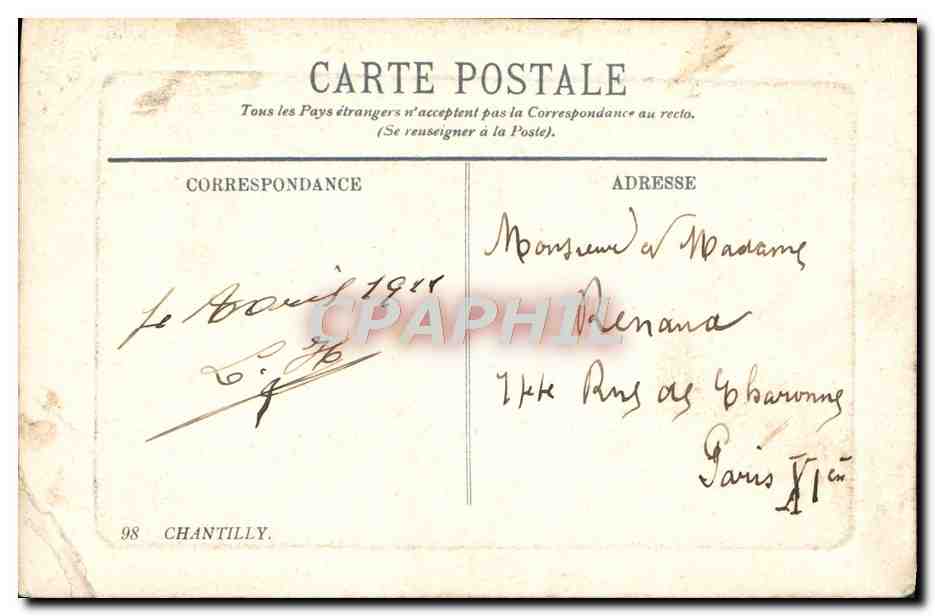 CARTE POSTALE
Tous les Pays étrangers n'acceptent pas la Correspondance au recto.
(Se renseigner à la Poste).
CORRESPONDANCE
Avril 1911
L. H
ADRESSE
Monsieur et Madame
Renaud
Rue de Charonne
Paris XIe
CPAPHIL
98 CHANTILLY.